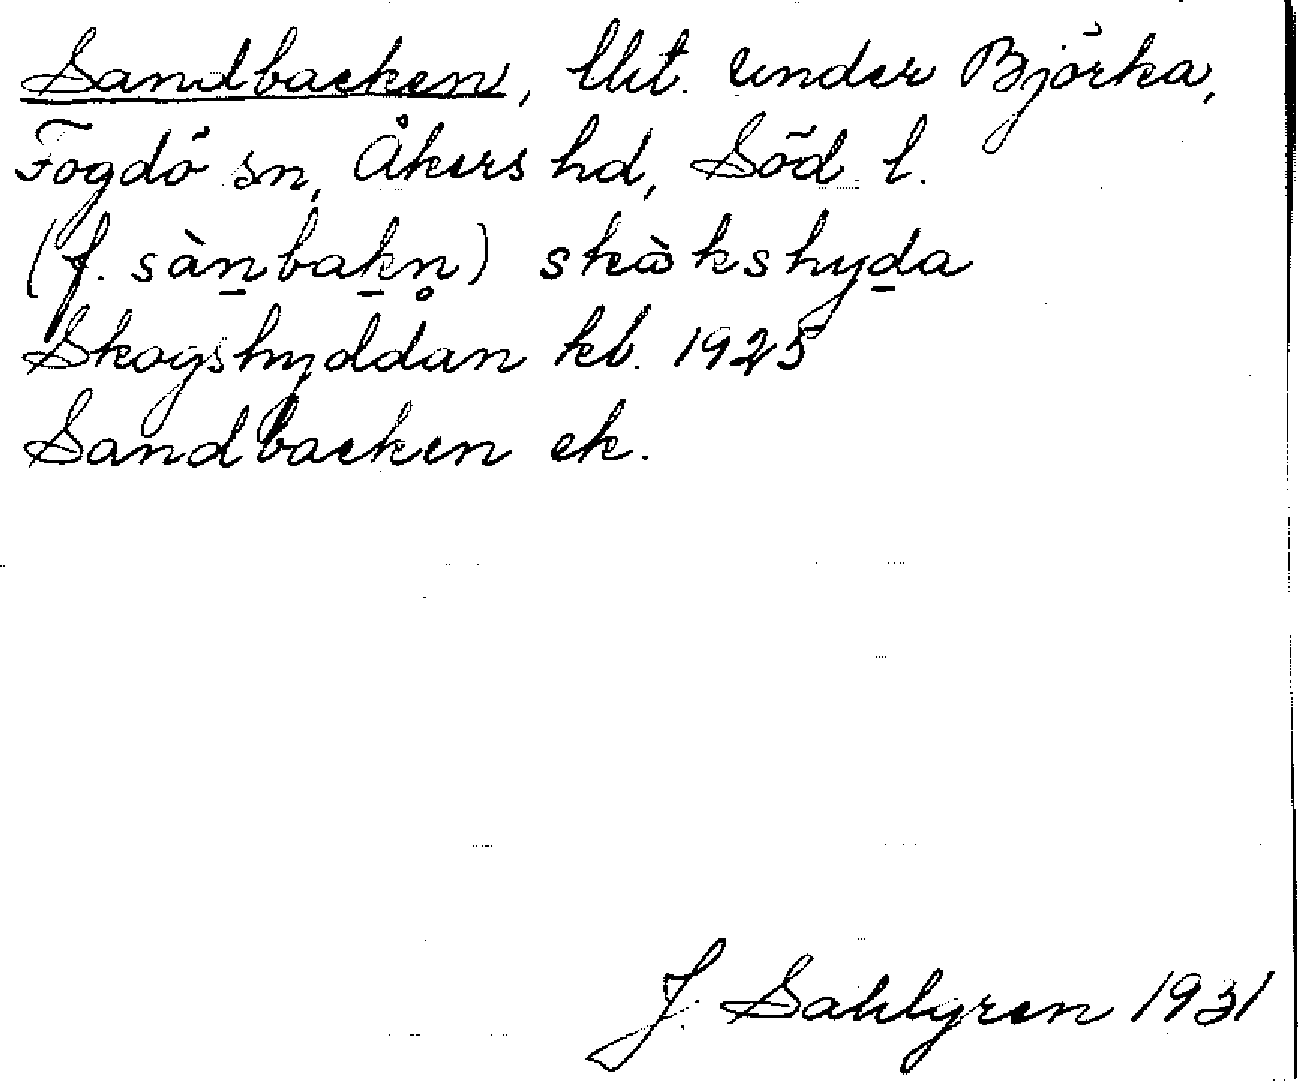 Sandbacken, lht. under Björka,
Fogdö sn, Åkers hd, Söd. l.
(f. sàn̲bak̲n̥) skàkshyd̲a
Skogshyddan kb. 1925
Sandbacken ek.
J. Sahlgren 1931